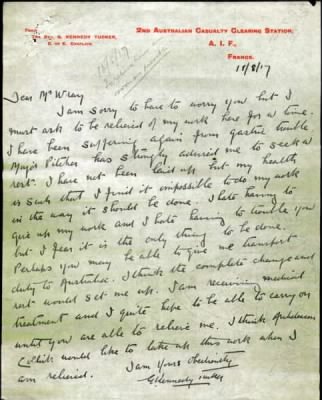 From
The Rev. G. KENNEDY TUCKER,
C. of E. CHAPLAIN.
2ND AUSTRALIAN CASUALTY CLEARING STATION,
A. I. F.,
FRANCE.
11/8/17
Dear Mr Wray
I am sorry to have to worry you but I
must ask to be relieved of my work here for a time.
I have been suffering again from gastric trouble
Major Pilcher has strongly advised me to seek a
rest. I have not been laid up but my health
is such that I find it impossible to do my work
in the way it should be done. I hate having to
give up my work and I hate having to trouble you
but I fear it is the only thing to be done.
Perhaps you may be able to give me transport
duty to Australia. I think the complete change and
rest would set me up. I am receiving medical
treatment and I quite hope to be able to carry on
until you are able to relieve me. I think
would like to take up this work when I
am relieved.
I am Yours Obediently
G Kennedy Tucker